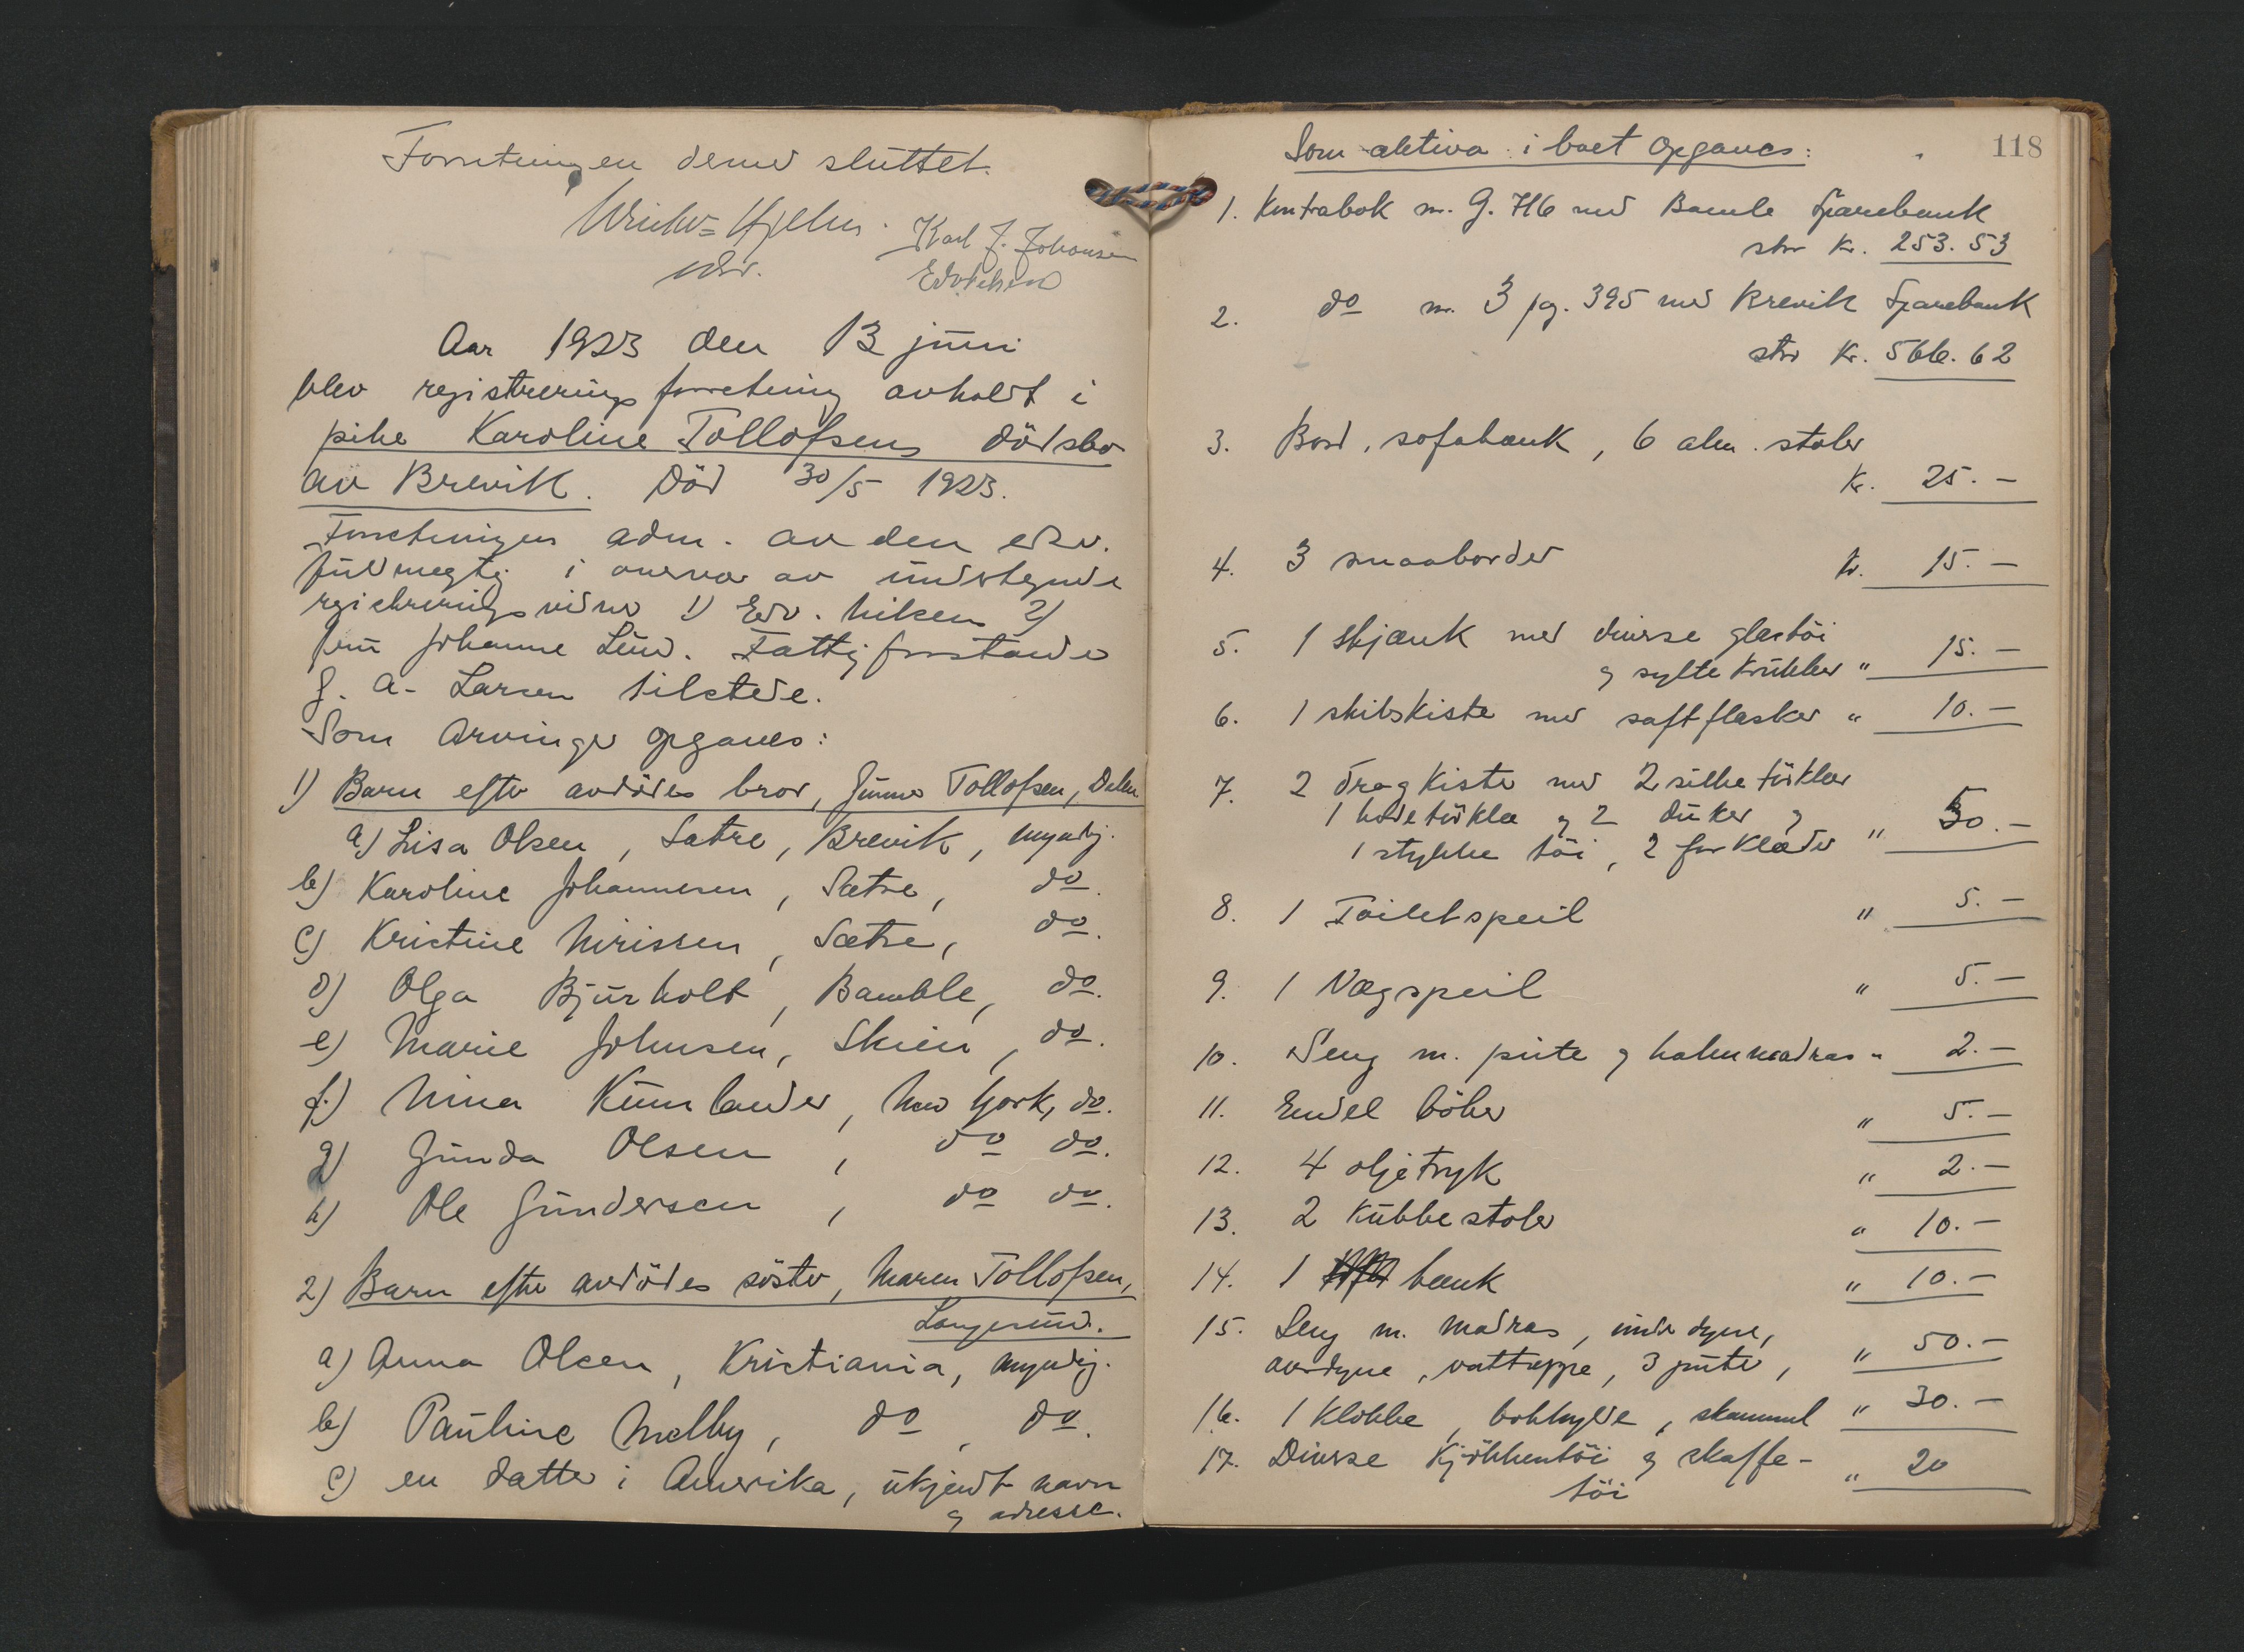 Forretningen dermed sluttet.
Karl J. Johansen
Aar 1923 den 13 juni
blev registreringsforretning avholdt i
pike Karoline Tollofsens dödsbo
av Brevik. Död 30/5 1923.
Forretningen adm. av den edsv.
fuldmegtig i overvær av undertegnede
registreringsvidner 1) Edv. Nilsen 2)
fru Johanne Lund. Fattigforstander
J. A. Larsen tilstede.
Som arvinger opgaves:
1) Barn efter avdödes bror, Gunner Tollofsen,
a) Lisa Olsen, Satre, Brevik, myndig.
b) Karoline Johannesen, Sætre, do.
c) Kristine Nirissen, Sætre, do.
d) Olga Bjurholt, Bamble, do.
e) Marie Johnsen, Skien, do.
f.) Nina Kumlander, New York, do.
g) Gunda Olsen, do do.
h) Ole Gundersen, do do.
2) Barn efter avdödes söster, Maren Tollofsen,
Langesund.
a) Anna Olsen, Kristiania, myndig.
b) Pauline Melby, do, do.
c) en datter i Amerika, ukjendt navn
og adresse.
118
Som aktiva i boet opgaves:
1. Kontrabok nr. G. 716 med Bamle Sparebank
stor kr. 253.53
2. do nr. 3 pg. 395 med Brevik Sparebank
stor kr. 566.62
3. Bord, sofabænk, 6 alm. stoler
kr. 25.—
4. 3 smaaborder kr. 15.—
5. 1 skjænk med diverse glastöi
og syltekrukker " 15.—
6. 1 skibskiste med saftflasker " 10.—
7. 2 dragkister med 2 silketörklær
1 hodetörklæ og 2 duker og
1 stykke töi, 2 forklæder " 50.—
8. 1 Toiletspeil " 5.—
9. 1 Vægspeil " 5.—
10. Seng m. pute og halmmadras " 2.—
11. Endel böker " 5.—
12. 4 oljetryk " 2.—
13. 2 kubbestoler " 10.—
14. 1 bænk " 10.—
15. Seng m. madras, underdyne,
overdyne, vatteppe, 3 puter, " 50.—
16. 1 klokke, bokhylde, skammel " 30.—
17. Diverse kjökkentöi og skaffe-
töi " 20